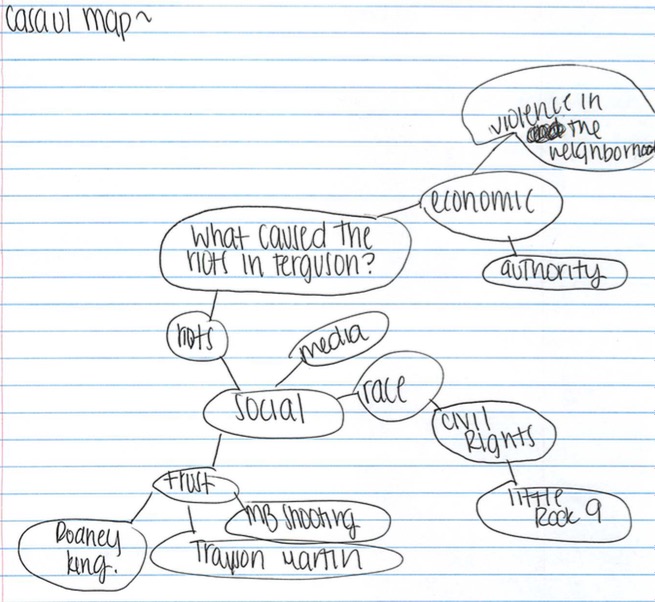 Casaul map~
violence in
the
neignborhood
economic
What caused the
riots in ferguson?
authority
riots
media
race
social
Civil
Rights
trust
little
Rock 9
MB Shooting
Rodney
king.
Trayvon Martin